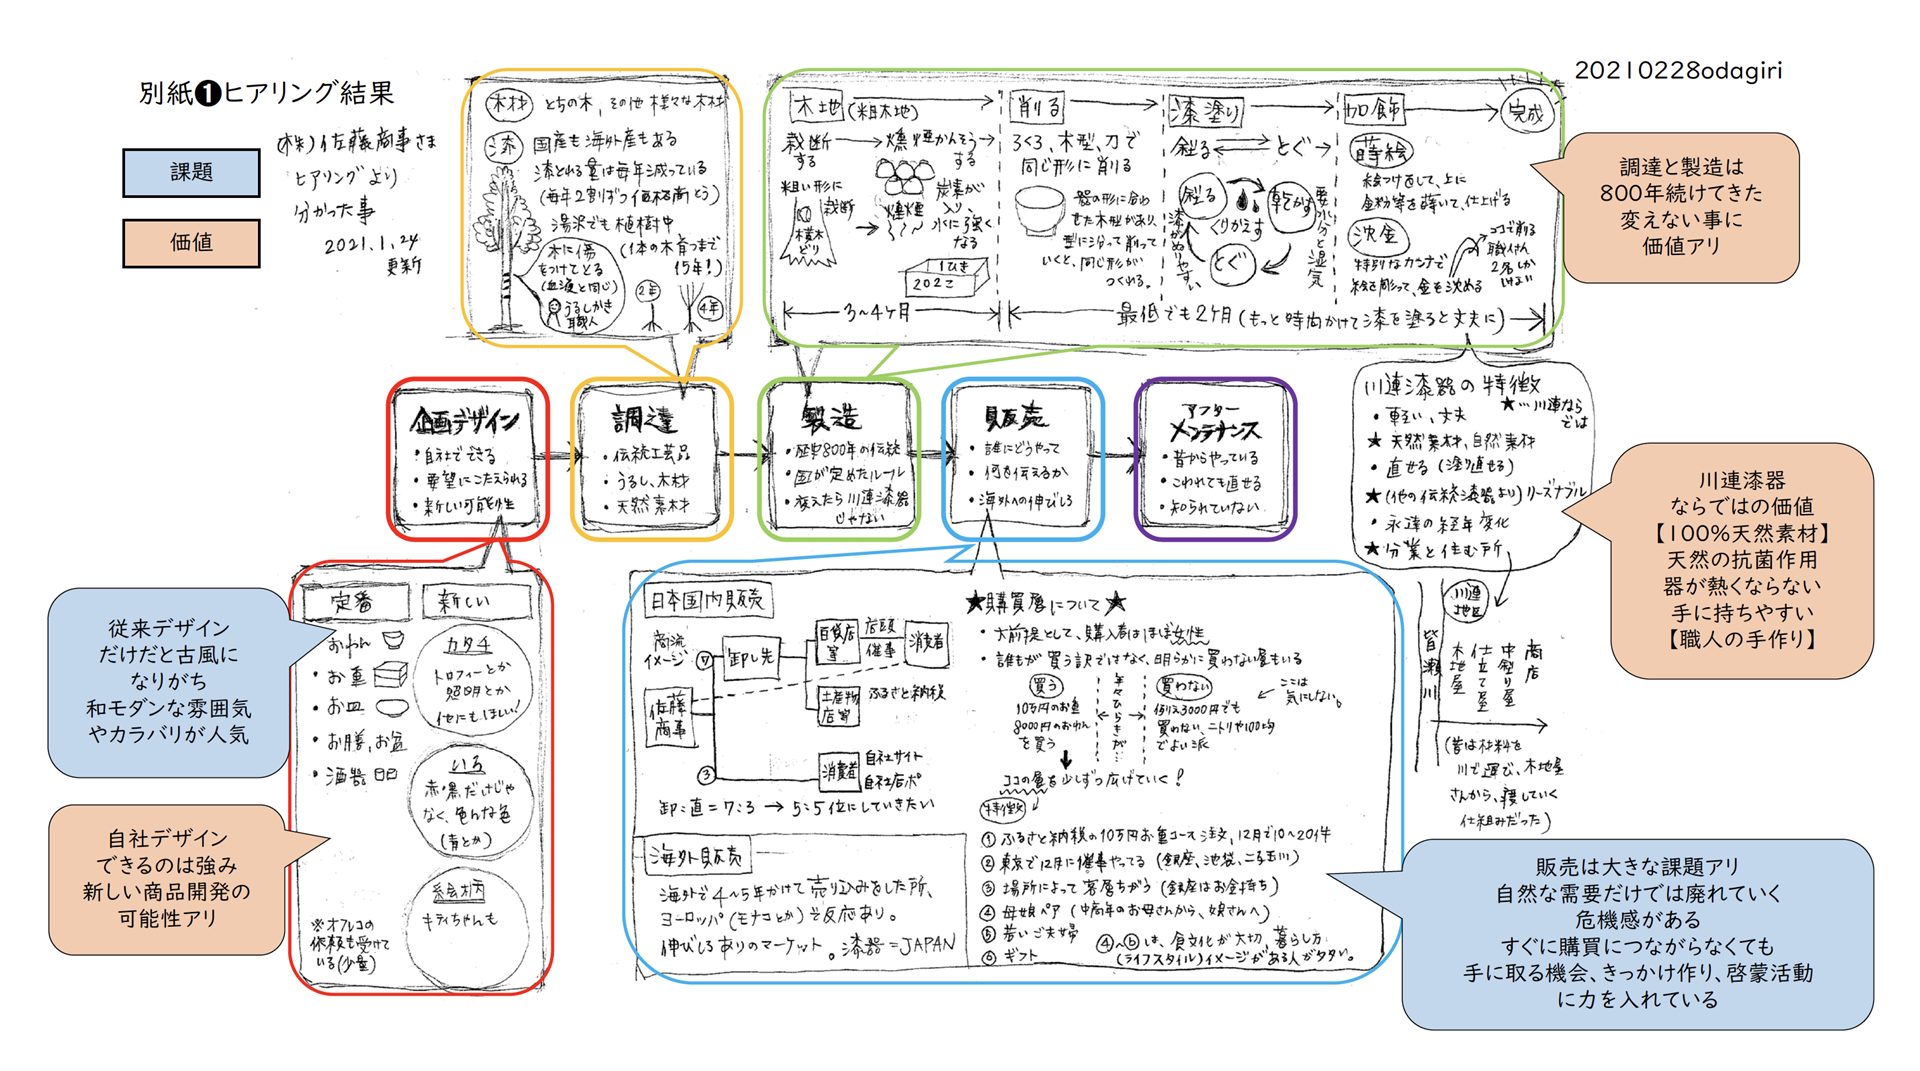 別紙❶ヒアリング結果
20210228odagiri
課題
価値
(株)佐藤商事さま
ヒアリングより
分かった事
2021.1.24
更新
木材 とちの木、その他様々な木材
漆 国産も海外産もある
漆とれる量は毎年減っている
(毎年2割ずつ価格高とう)
湯沢でも植樹中
(1体の木育つまで
15年!)
木に傷
をつけてとる
(血液と同じ)
うるしかき
職人
2年
4年
木地(粗木地)
削る
漆塗り
加飾
完成
裁断
する
燻煙かんそう
する
粗い形に
裁断
横木
どり
燻煙
炭素が
入り、
水に強く
なる
1ひき
202こ
3〜4ヶ月
ろくろ、木型、刀で
同じ形に削る
器の形に合わ
せた木型があり、
型に沿って削って
いくと、同じ形が
つくれる。
塗る
とぐ
塗る
乾かす
くりかえす
とぐ
漆がぬりやすい
要水分と湿気
蒔絵
絵つけをして、上に
金粉等を蒔いて、仕上げる
沈金
特別なカンナで
絵を彫って、金を沈める
ココで削る
職人さん
2名しか
いない
最低でも2ヶ月(もっと時間かけて漆を塗ると丈夫に)
調達と製造は
800年続けてきた
変えない事に
価値アリ
企画デザイン
・自社でできる
・要望にこたえられる
・新しい可能性
調達
・伝統工芸品
・うるし、木材
・天然素材
製造
・歴史800年の伝統
・国が定めたルール
・変えたら川連漆器
じゃない
販売
・誰にどうやって
・何を伝えるか
・海外への伸びしろ
アフター
メンテナンス
・昔からやっている
・こわれても直せる
・知られていない
川連漆器の特徴
★…川連なら
では
・軽い、丈夫
★天然素材、自然素材
・直せる(塗り直せる)
★(他の伝統漆器より)リーズナブル
・永遠の経年変化
★分業と住む所
川連漆器
ならではの価値
【100%天然素材】
天然の抗菌作用
器が熱くならない
手に持ちやすい
【職人の手作り】
川連
地区
皆瀬川
木地屋
仕立て屋
中塗り屋
商店
(昔は材料を
川で運び、木地屋
さんから、渡していく
仕組みだった)
従来デザイン
だけだと古風に
なりがち
和モダンな雰囲気
やカラバリが人気
自社デザイン
できるのは強み
新しい商品開発の
可能性アリ
定番
新しい
・おわん
・お重
・お皿
・お膳、お盆
・酒器
カタチ
トロフィーとか
照明とか
他にもほしい!
いろ
赤・黒だけじゃ
なく、色んな色
(青とか)
絵柄
キティちゃんも
※オフレコの
依頼も受けて
いる(少量)
日本国内販売
商流
イメージ
⑦
卸し先
百貨店
等
店頭
催事
消費者
佐藤
商事
土産物
店等
ふるさと納税
③
消費者
自社サイト
自社店ポ
卸:直=7:3→5:5位にしていきたい
海外販売
海外で4〜5年かけて売り込みをした所、
ヨーロッパ(モナコとか)で反応あり。
伸びしろありのマーケット。漆器=JAPAN
★購買層について★
・大前提として、購入者はほぼ女性
・誰もが買う訳ではなく、明らかに買わない層もいる
買う
10万円のお重
8000円のおわん
を買う
年々ひらきが…
買わない
例え3000円でも
買わない、ニトリや100均
でよい派
ここは
気にしない。
ココの層を少しずつ広げていく!
特徴
①ふるさと納税の10万円お重コース注文、12月で10〜20件
②東京で12月に催事やってる(銀座、池袋、二子玉川)
③場所によって客層ちがう(銀座はお金持ち)
④母娘ペア(中高年のお母さんから、娘さんへ)
⑤若いご夫婦
⑥ギフト
④〜⑥は、食文化が大切、暮らし方
(ライフスタイル)イメージがある人が多い。
販売は大きな課題アリ
自然な需要だけでは廃れていく
危機感がある
すぐに購買につながらなくても
手に取る機会、きっかけ作り、啓蒙活動
に力を入れている